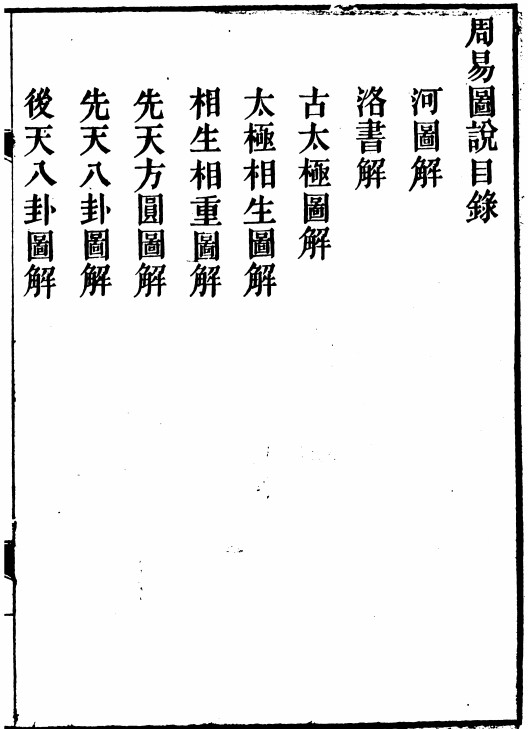 周易圖說目錄
河圖解
洛書解
古太極圖解
太極相生圖解
相生相重圖解
先天方圓圖解
先天八卦圖解
後天八卦圖解